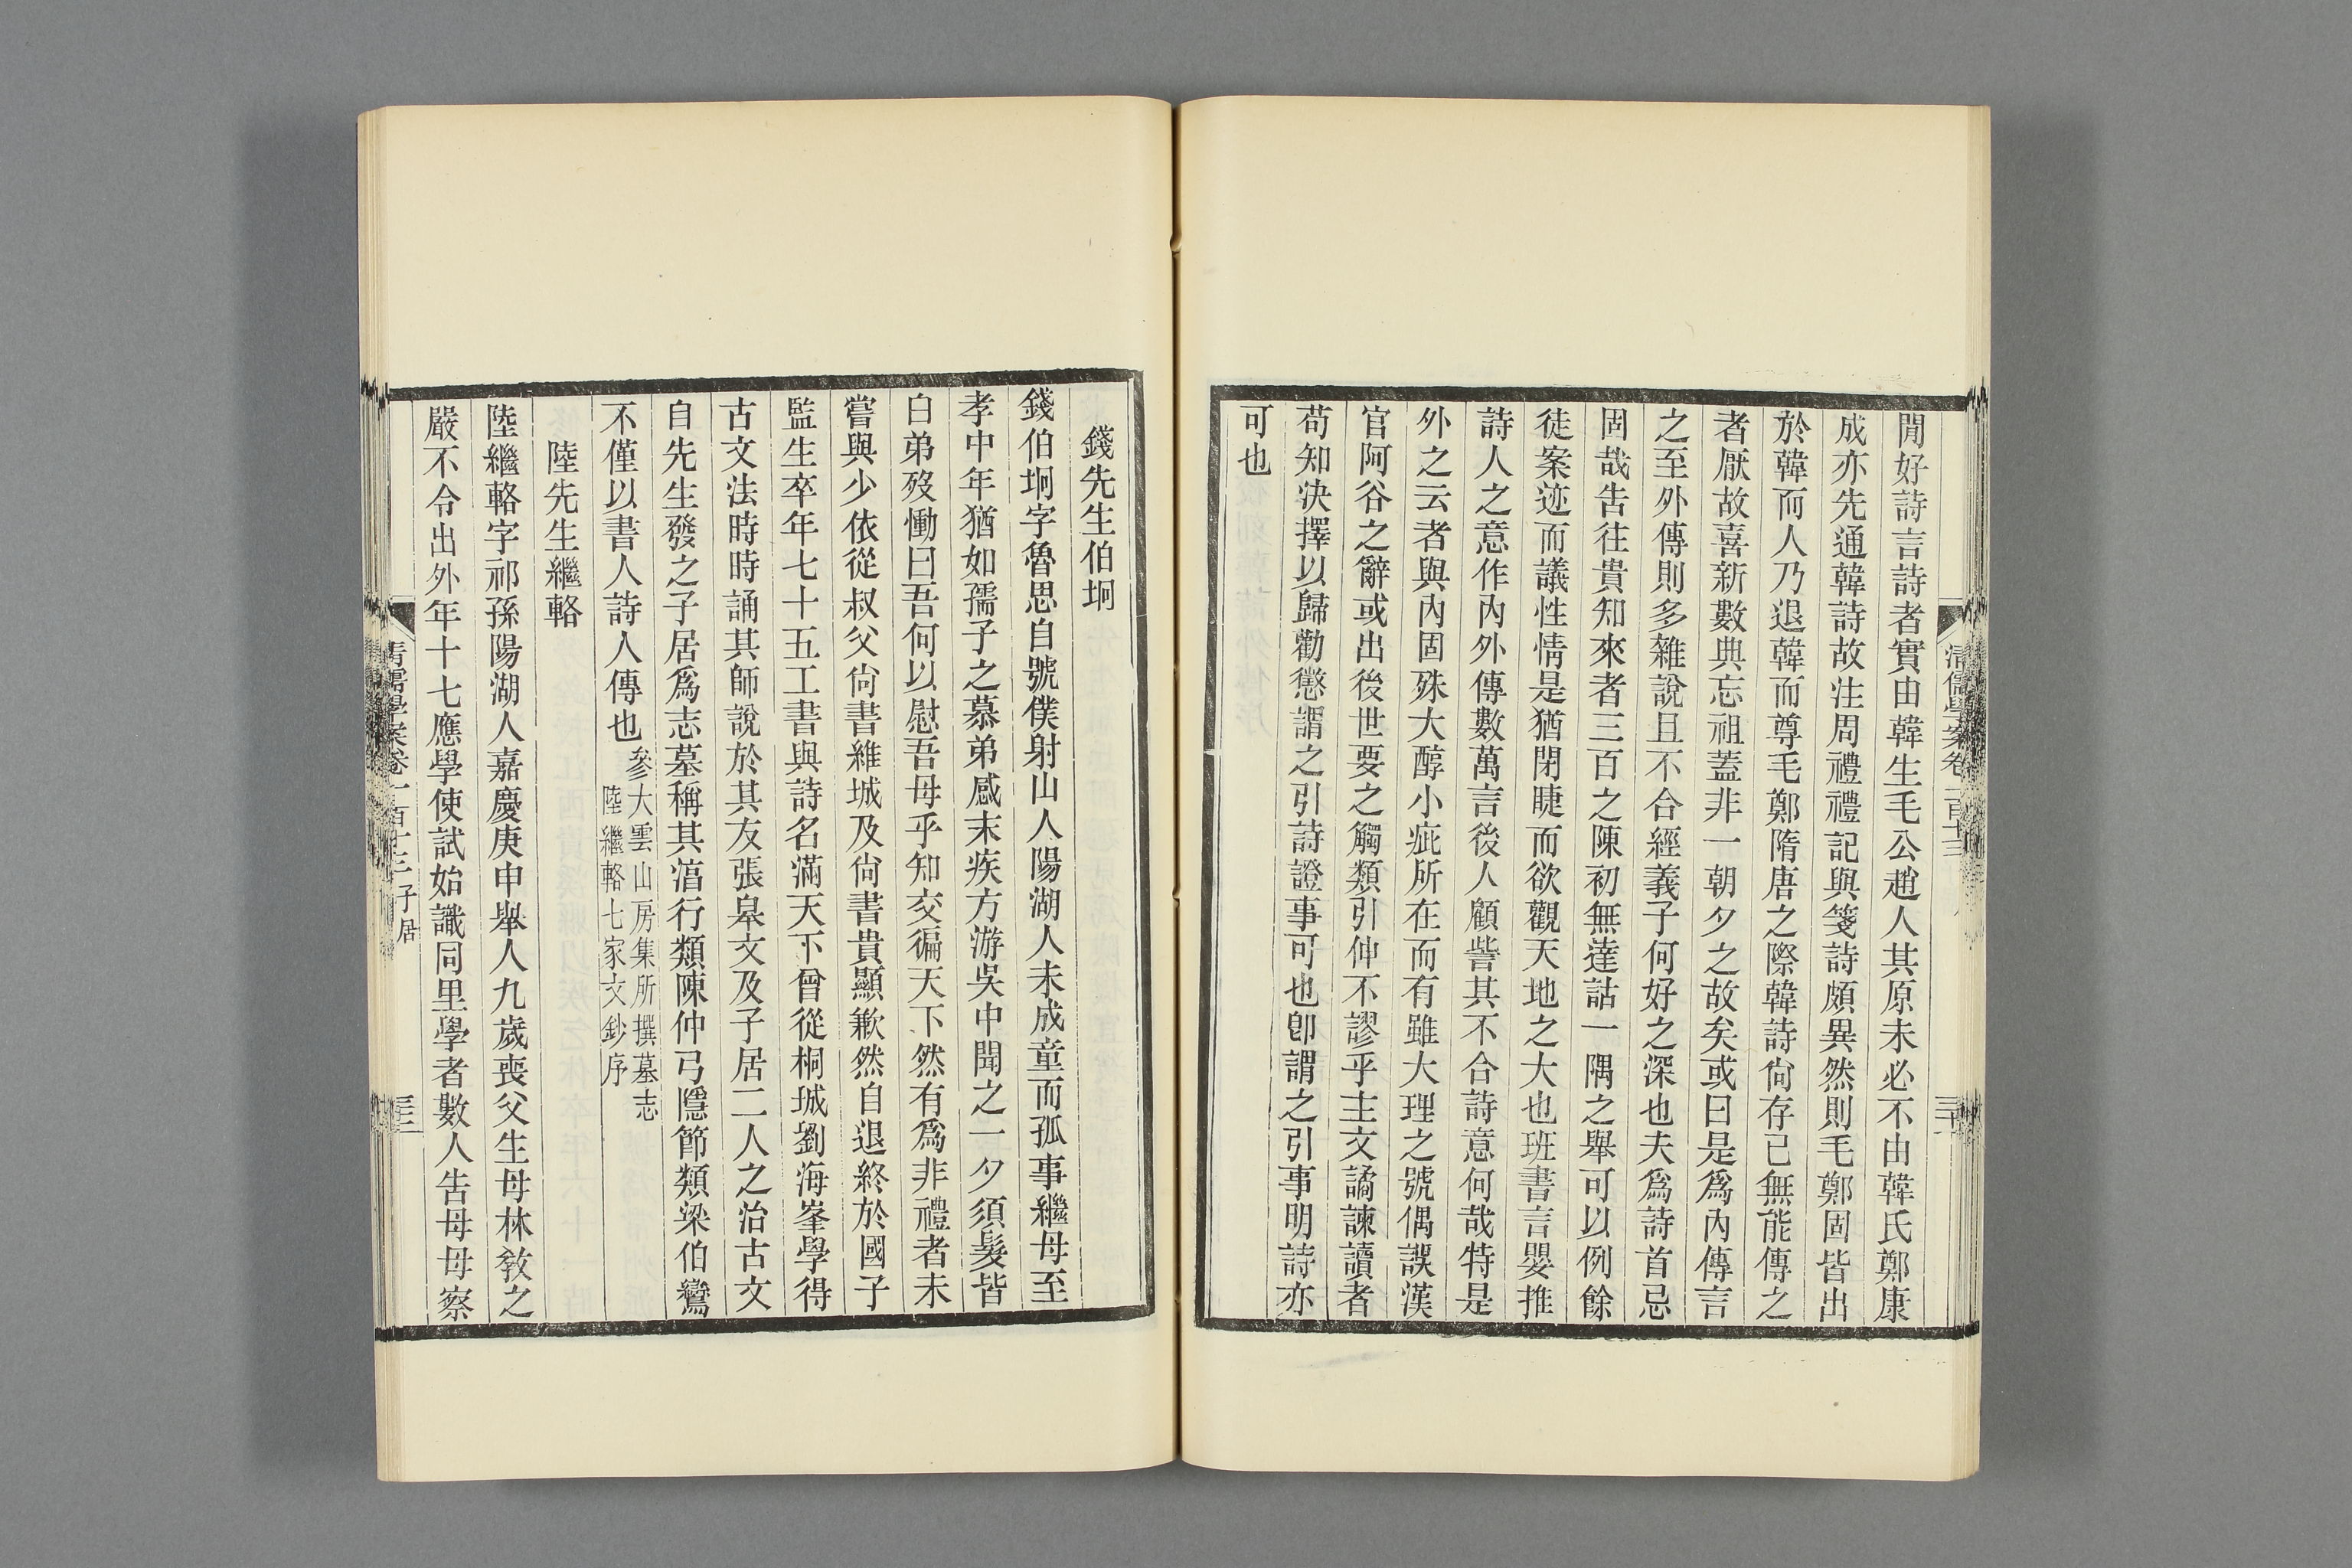 閒好詩言詩者實由韓生毛公趙人其原未必不由韓氏鄭康
成亦先通韓詩故注周禮禮記與箋詩頗異然則毛鄭固皆出
於韓而人乃退韓而尊毛鄭隋唐之際韓詩尙存已無能傳之
者厭故喜新數典忘祖蓋非一朝夕之故矣或曰是爲內傳言
之至外傳則多雜說且不合經義子何好之深也夫爲詩首忌
固哉告往貴知來者三百之陳初無達詁一隅之舉可以例餘
徒案迹而議性情是猶閉睫而欲觀天地之大也班書言嬰推
詩人之意作內外傳數萬言後人顧訾其不合詩意何哉特是
外之云者與內固殊大醇小疵所在而有雖大理之號偶誤漢
官阿谷之辭或出後世要之觸類引伸不謬乎主文譎諫讀者
苟知決擇以歸勸懲謂之引詩證事可也卽謂之引事明詩亦
可也
清儒學案卷一百十三
錢先生伯坰
錢伯坰字魯思自號僕射山人陽湖人未成童而孤事繼母至
孝中年猶如孺子之慕弟感末疾方游吳中聞之一夕須髮皆
白弟歿慟曰吾何以慰吾母乎知交徧天下然有爲非禮者未
嘗與少依從叔父尙書維城及尙書貴顯歉然自退終於國子
監生卒年七十五工書與詩名滿天下曾從桐城劉海峯學得
古文法時時誦其師說於其友張皋文及子居二人之治古文
自先生發之子居爲志墓稱其㴑行類陳仲弓隱節類梁伯鸞
不僅以書人詩人傳也參大雲山房集所撰墓志
陸繼輅七家文鈔序
陸先生繼輅
陸繼輅字祁孫陽湖人嘉慶庚申舉人九歲喪父生母林敎之
嚴不令出外年十七應學使試始識同里學者數人告母母察
清儒學案卷一百十三 子居